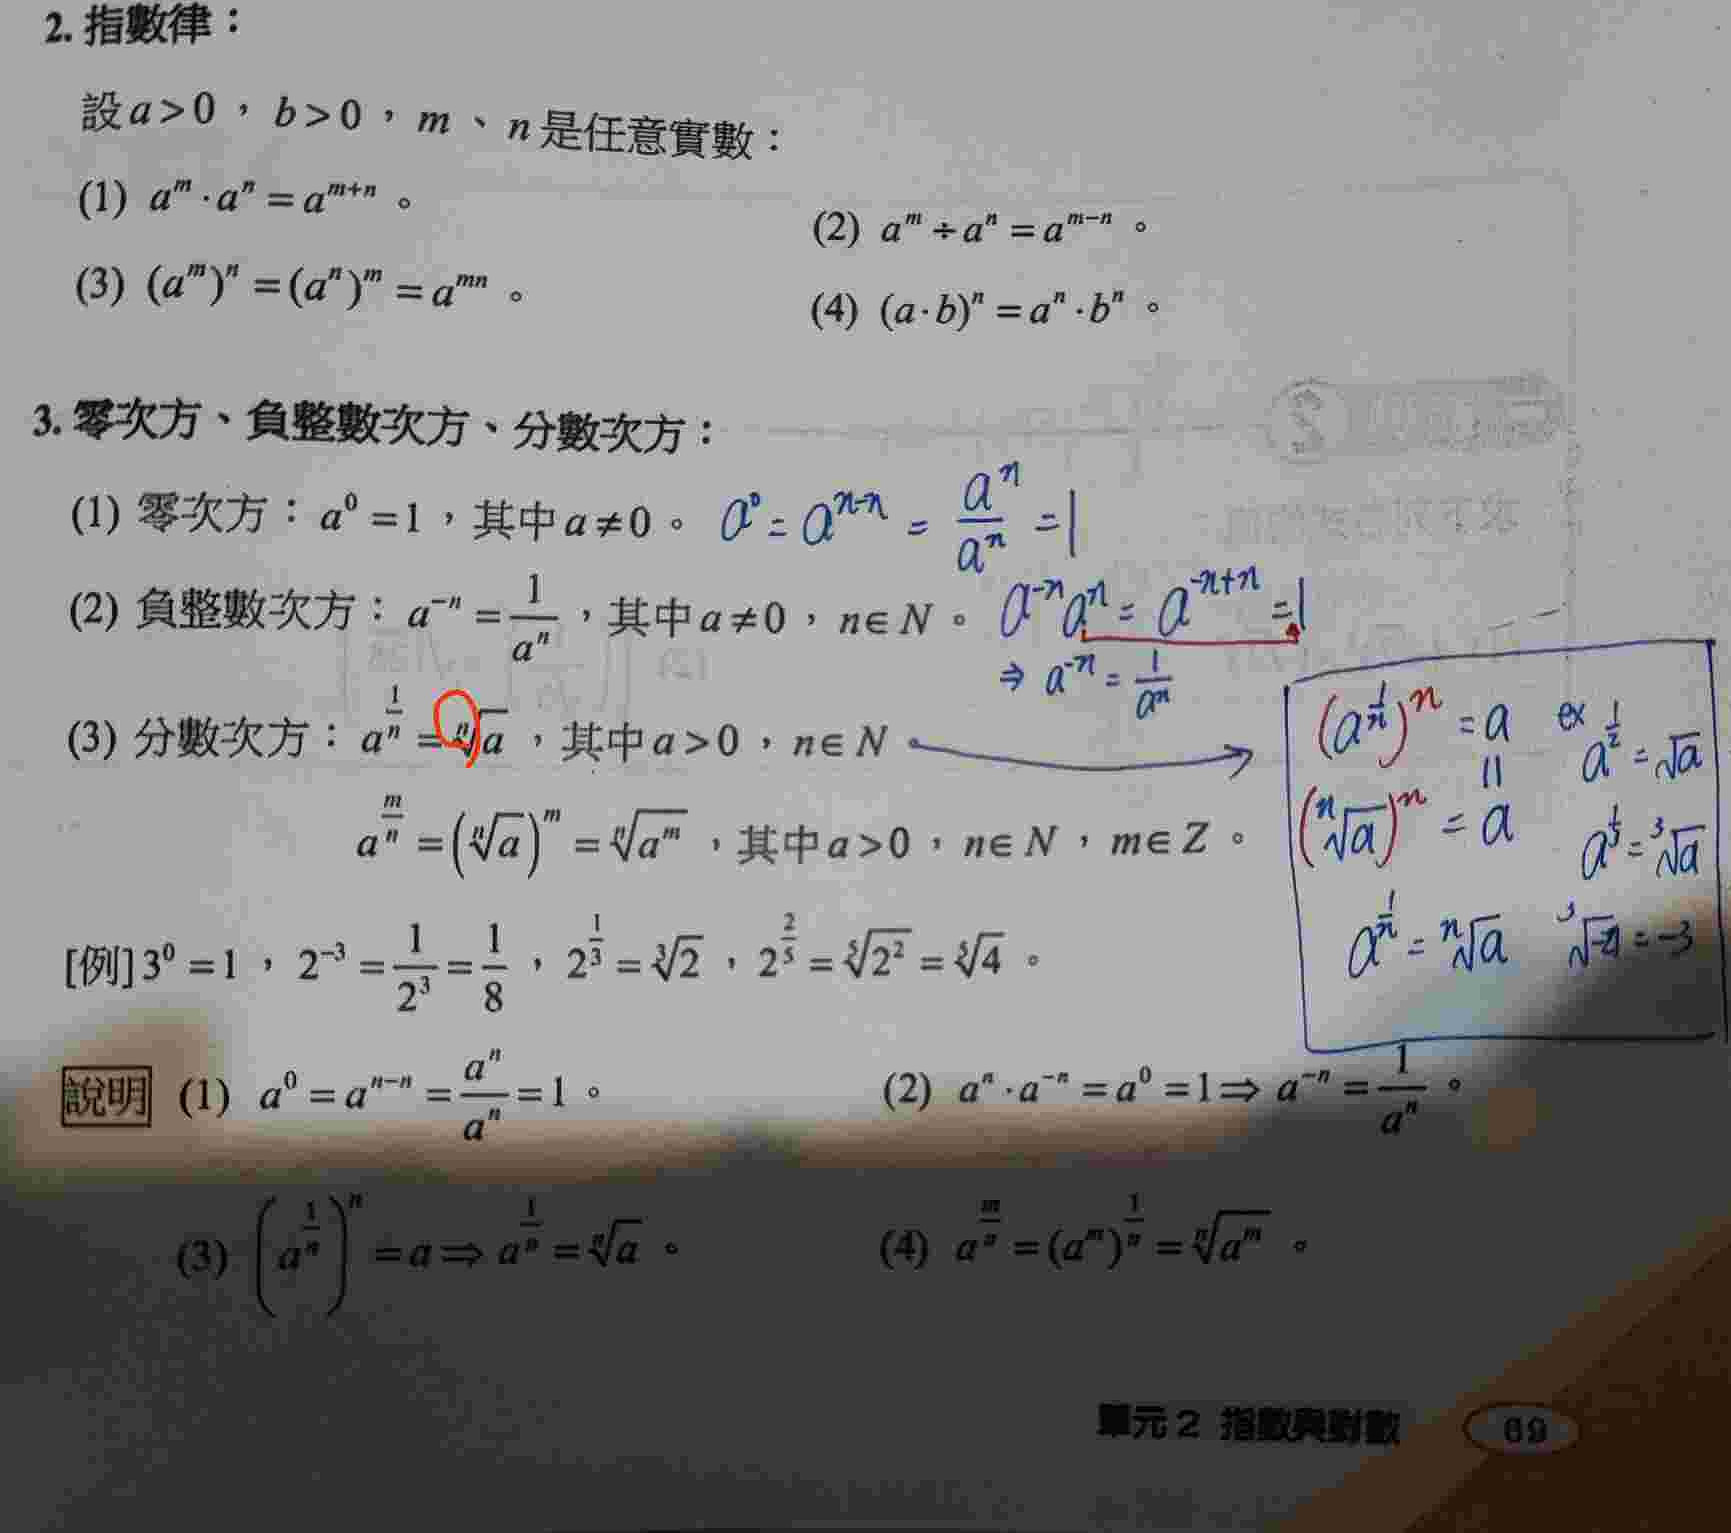 2. 指數律：
設 a > 0 , b > 0 , m 、 n 是任意實數：
(1) a^m · a^n = a^{m+n} 。
(2) a^m ÷ a^n = a^{m−n} 。
(3) (a^m)^n = (a^n)^m = a^{mn} 。
(4) (a · b)^n = a^n · b^n 。
3. 零次方、負整數次方、分數次方：
(1) 零次方：a^0 = 1，其中 a ≠ 0 。 a^0 = a^{n-n} = a^n/a^n = 1
(2) 負整數次方：a^{−n} = 1/a^n，其中 a ≠ 0，n ∈ N 。 a^{-n} a^n = a^{-n+n} = 1
⇒ a^{-n} = 1/a^n
(3) 分數次方：a^{1/n} = ⁿ√a，其中 a > 0，n ∈ N 。
a^{m/n} = (ⁿ√a)^m = ⁿ√(a^m)，其中 a > 0，n ∈ N，m ∈ Z 。
(a^{1/n})^n = a
||
(ⁿ√a)^n = a
a^{1/n} = ⁿ√a
ex a^{1/2} = √a
a^{1/3} = ³√a
= -3
[例] 3^0 = 1，2^{−3} = 1/2^3 = 1/8，2^{1/3} = ³√2，2^{2/5} = ⁵√(2^2) = ⁵√4 。
說明 (1) a^0 = a^{n−n} = a^n/a^n = 1 。
(2) a^n · a^{−n} = a^0 = 1 ⇒ a^{−n} = 1/a^n 。
(3) (a^{1/n})^n = a ⇒ a^{1/n} = ⁿ√a 。
(4) a^{m/n} = (a^m)^{1/n} = ⁿ√(a^m) 。
單元 2 指數與對數 69